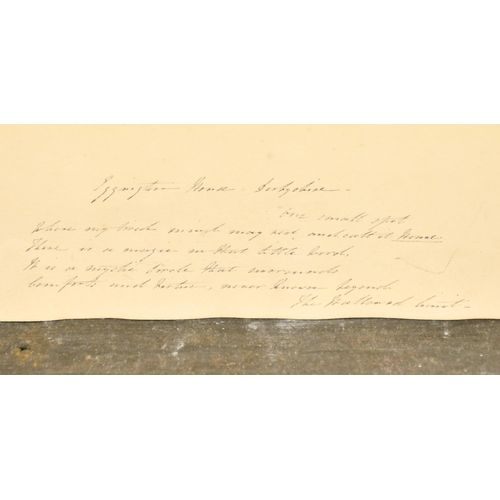 Eggington House - Derbyshire -
"One small spot
Where my tired mind may rest and call it Home
There is a magic in that little word,
It is a mystic Circle that surrounds
Comforts and Virtues, never known beyond
The Hallowed limit -